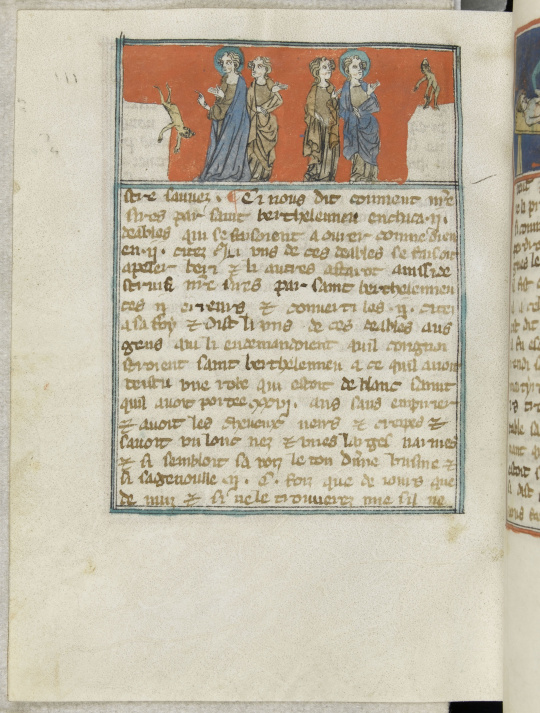 estre sauuez. Ci nous dit comment nre
sires par saint berthelemieu enchaca .ij.
deables qui se faisoient aourer comme dieu
en .ij. citez li uns de ces deables se faisoit
apeler beri & li autres astarot
nre sires par saint berthelemieu
ces .ij. erreurs & conuerti les .ij. citez
a sa foy & dist li uns de ces deables aus
gens qui li endemandoient quil
saint berthelemieu a ce quil auoit
uestu une robe qui estoit de blanc samit
quil auoit portee .xxvj. ans sans empirier
& auoit les cheueux noirs & crespes &
sauoit un lonc nez & unes larges narines
& si sembloit sa uoiz le ton dune busine &
si sagenoille .ij. C. foiz que de iours que
de nuiz & si ne le trouuerez mie sil ne